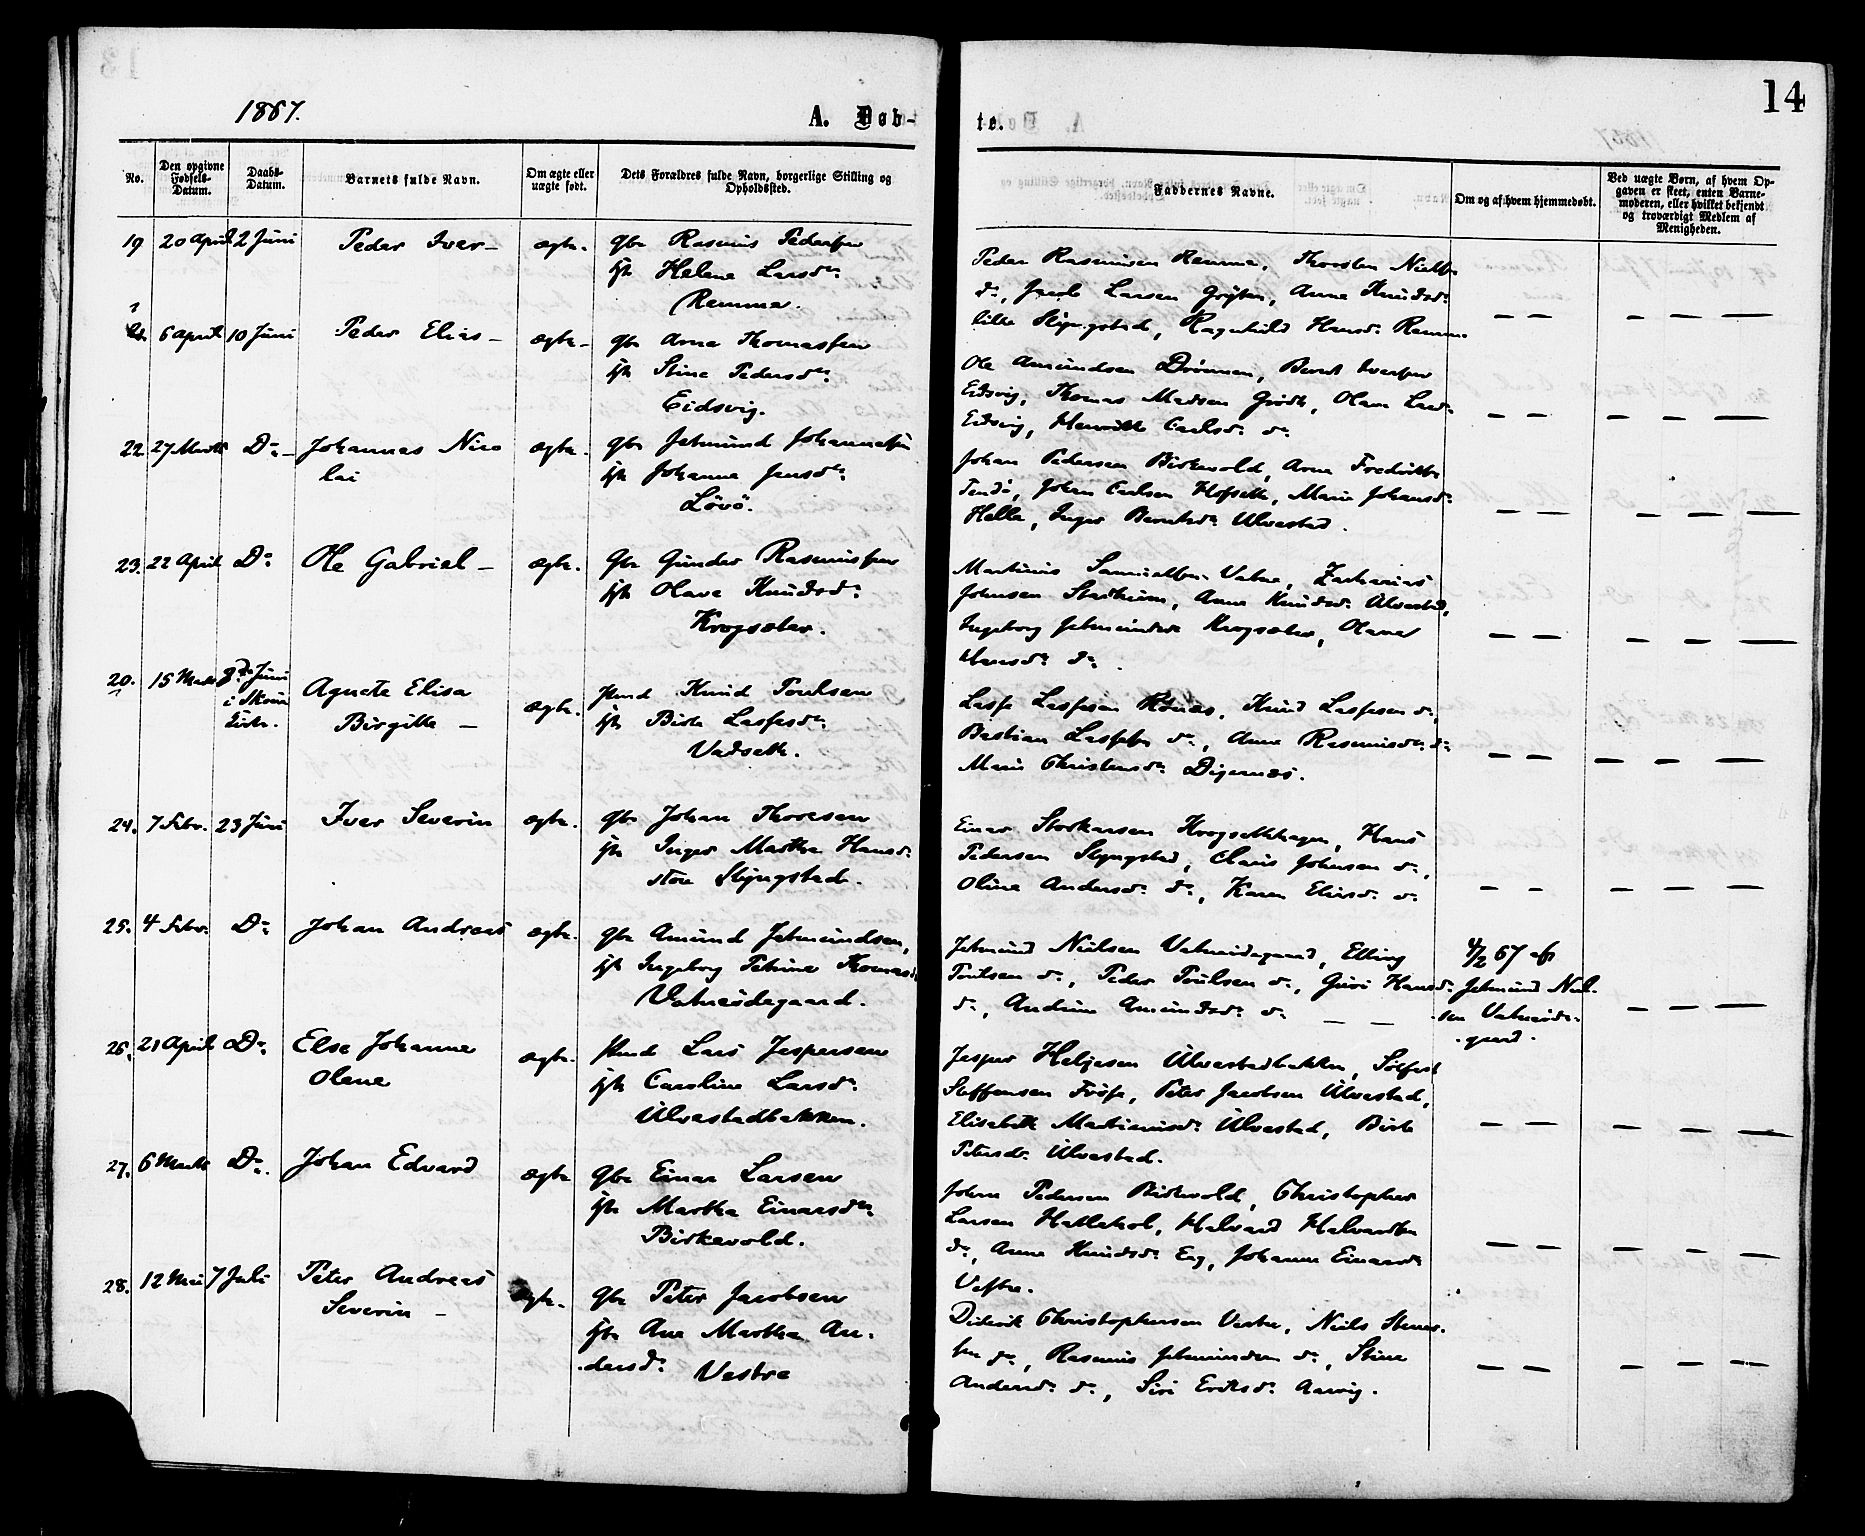 14
1867.
A. Døb-
te.
No.
Den opgivne Fødsels-Datum.
Daabs-Datum.
Barnets fulde Navn.
Om ægte eller uægte født.
Dets Forældres fulde Navn, borgerlige Stilling og Opholdssted.
Faddernes Navne.
Om og af hvem hjemmedøbt.
Ved uægte Børn, af hvem Op-
gaven er skeet, enten Barne-
moderen, eller hvilket bekjendt
og troværdigt Medlem af
Menigheden.
19 20 April 2 Juni Peder Iver - ægte. Gbr Rasmus Pedersen
Helene Larsdr
Remmen.
Peder Rasmusen Remmen, Thorsten Niels
dr, Jacob Larsen Gryten, Anne Knudsdr
lille Slyngstad, Ragnhild Hansdr Remmen
6 April 10 Juni Peder Elias - ægte - Gbr Arne Thomassen
Stine Pedersdr
Eidsvig.
Ole Amundsen Drönnen, Berent Iversen
Eidsvig, Thomas Madsen Grödt, Olave Lars
Eidsvig, Henrikke Carlsdr do
22 27 Marts Do - Johannes Nico
lai ægte. Gbr Jetmund Johannessen
Johanne Jensdr
Lövö.
Johan Pedersen Birkevold, Arne Fredriks
Tendö, Johan Carlsen Hofseth, Marie Johansdr
Helle, Inger Berntsdr Ulvestad.
23. 22 April Do Ole Gabriel - ægte. Gbr Gunder Rasmussen
Olave Knudsdr
Krogsæter.
Martinus Samuelsen Vatne, Zacharias
Johnsen Stadheim, Anne Knudsdr Ulvestad,
Ingeborg Jetmundsdr Krogsæter, Olave
Hansdr do.
20. 15 Marts Juni
i Skoue
Kirke.
Agnete Elisa
Birgitte - ægte. Knud Poulsen
Birte Lassesdr
Vadseth.
Lasse Lassesen Rönæs, Knud Lassesen do,
Bastian Lassesen do, Anne Rasmusdr do
Marie Christensdr Digernæs.
24. 7 Febr. 23 Juni Iver Severin ægte. Gbr Johan Thoresen
Inger Martha Hansdr
store Slyngstad.
Einar Storkarsen Krogsethhagen, Hans
Pedersen Slyngstad, Claus Johnsen do,
Oline Andersdr do, Karen Eliasdr do
25. 4 Febr. Do Johan Andreas ægte. Gbr Amund Jetmundsen,
Ingeborg Petrine Thomasdr
Vatneödegaard.
Jetmund Nielsen Vatneödegaard, Elling
Poulsen do, Peder Poulsen do, Guri Hansdr
do, Andrine Amundsdr do
4/2 67 af
Jetmund Niel-
sen Vatneöde-
gaard.
26. 21 April Do Else Johanne
Olene ægte. Lars Jespersen
Caroline Larsdr
Ulvestadbakken.
Jesper Helgesen Ulvestadbakken, Sölfest
Steffensen Fröse, Peter Jacobsen Ulvestad,
Elisabeth Martinusdr Ulvestad, Birte
Petersdr Ulvestad.
27. 6 Marts Do. Johan Edvard ægte Gbr Einar Larsen
Martha Einarsdr
Birkevold.
Johan Pedersen Birkevold, Christopher
Larsen Hatlehol, Halvard Halvardsen
do, Anne Knudsdr Eeg, Johanne Einarsdr
Vestre.
28. 12 Mai 7 Juli Peter Andreas
Severin - ægte. Gbr Peter Jacobsen
Ane Martha An-
dersdr Vestre
Diderik Christophersen Vestre, Niels Stenes-
sen do, Rasmus Jetmundsen do, Stine
Andersdr do, Siri Eriksdr Aarvig.